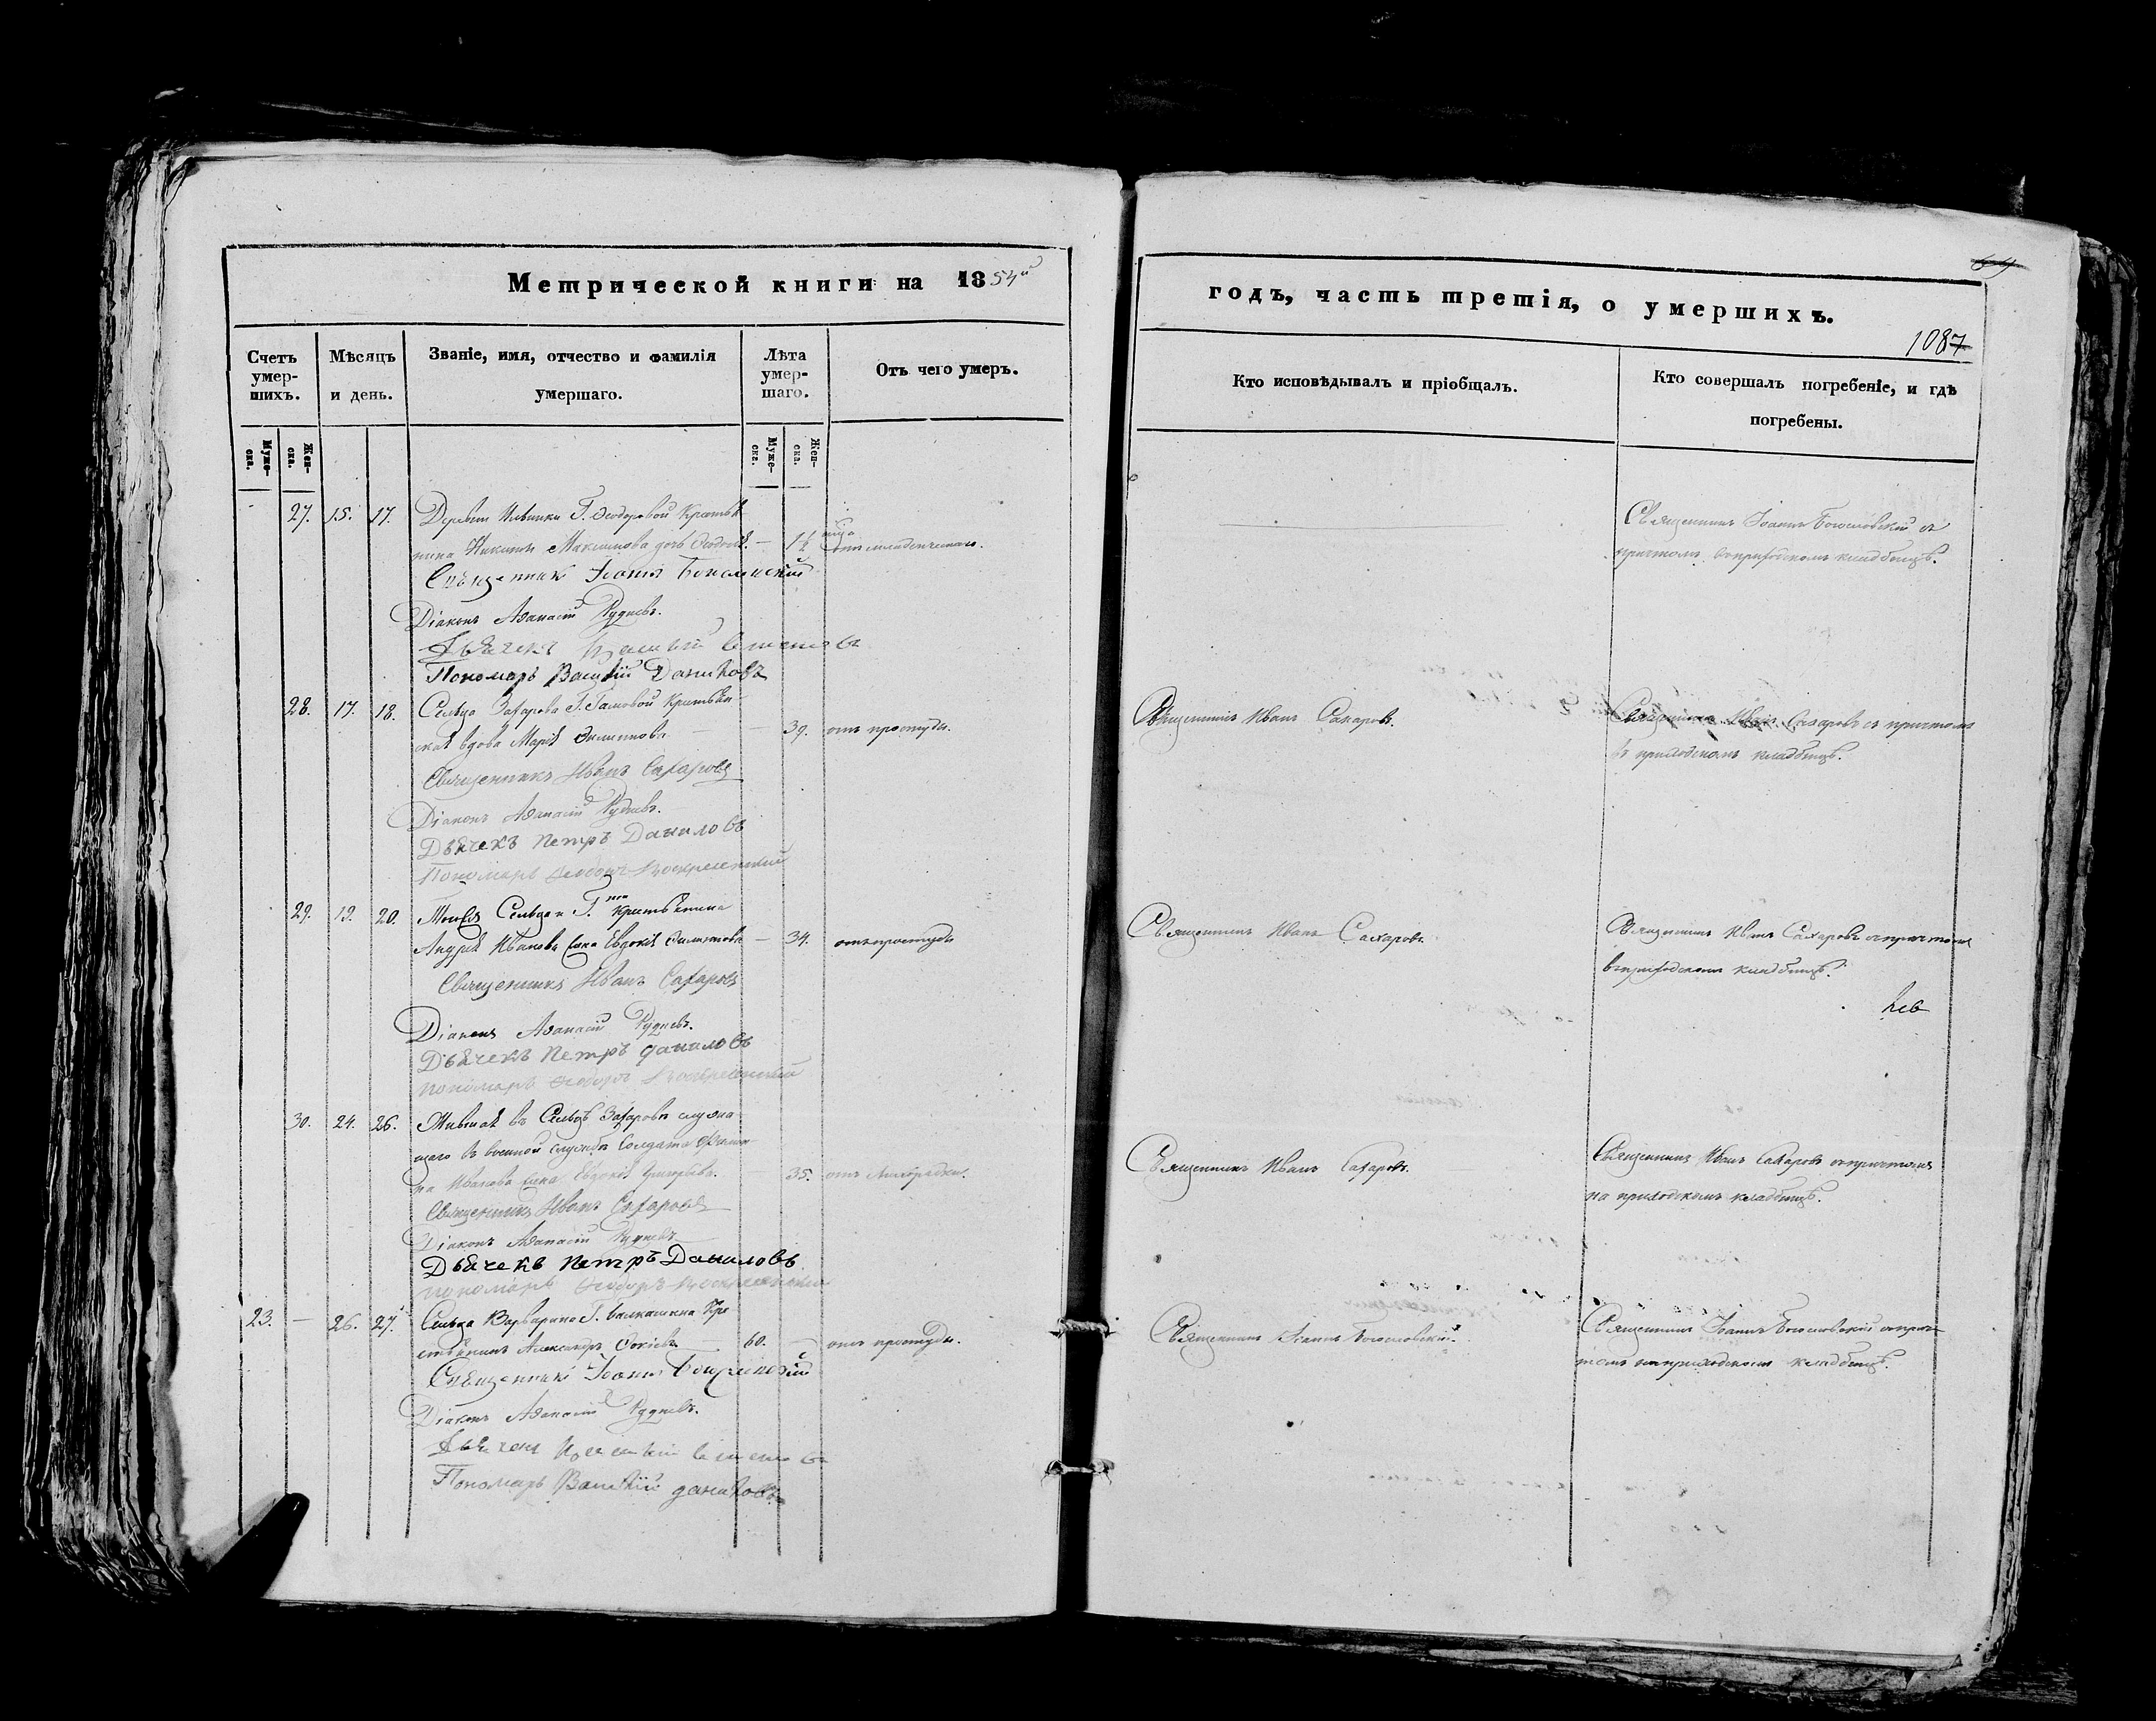 Метрической книги на 1854й
Счетъ умер-шихъ.
Мѣсяцъ и день.
Званіе, имя, отчество и фамилія умершаго.
Лѣта умер-шаго.
Отъ чего умеръ.
Муже-ска.
Жен-ска.
Муже-ска.
Жен-ска.
27. 15. 17. Деревни Ильинки Г. Ѳедоровой Крестья
нина Никиты Максимова дочь
Священникъ Іоаннъ Богословскій
Діаконъ Аѳанасій Рудневъ.
Дьячекъ
Пономарь Василій Даниловъ
28. 17. 18. Сельца Захарова Г. Крестьян
ская вдова Марія Филипова — 39. отъ простуды.
Священникъ Иванъ Сахаровъ
Діаконъ Аѳанасій Рудневъ.
Дьячекъ Петръ Даниловъ
Пономарь Ѳеодоръ Воскресенскій
29. 19. 20. Тогоже Сельца и Г. крестьянина
Андрея Иванова жена Евдокія Филипова — 34. отъ простуды
Священникъ Иванъ Сахаровъ
Діаконъ Аѳанасій Рудневъ.
Дьячекъ Петръ Даниловъ
пономарь Ѳеодоръ Воскресенскій
30. 24. 26. Жившая въ Сельцѣ Захаровѣ служа
щаго въ военной службѣ Солдата
на Иванова жена Евдокія Григорьева. 35. отъ лихорадки.
Священникъ Иванъ Сахаровъ
Діаконъ Аѳанасій Рудневъ
Дьячекъ Петръ Даниловъ
пономарь Ѳеодоръ Воскресенскій
23. — 26. 27. Сельца Варварина Г. Кре
стьянинъ Александръ 60. — отъ простуды.
Священникъ Іоаннъ Богословскій
Діаконъ Аѳанасій Рудневъ.
Дьячекъ
Пономарь Василій Даниловъ
годъ, часть третія, о умершихъ.
1087
Кто исповѣдывалъ и пріобщалъ.
Кто совершалъ погребеніе, и гдѣ погребены.
Священникъ Іоаннъ Богословскій съ
причтомъ въ приходскомъ кладбищѣ.
Священникъ Иванъ Сахаровъ.
Священникъ Иванъ Сахаровъ съ причтомъ
въ приходскомъ кладбищѣ.
Священникъ Иванъ Сахаровъ
Священникъ Иванъ Сахаровъ съ причтомъ
въ приходскомъ кладбищѣ.
Священникъ Иванъ Сахаровъ.
Священникъ Иванъ Сахаровъ съ причтомъ
на приходскомъ кладбищѣ.
Священникъ Іоаннъ Богословскій.
Священникъ Іоаннъ Богословскій съ прич
томъ въ приходскомъ кладбищѣ.